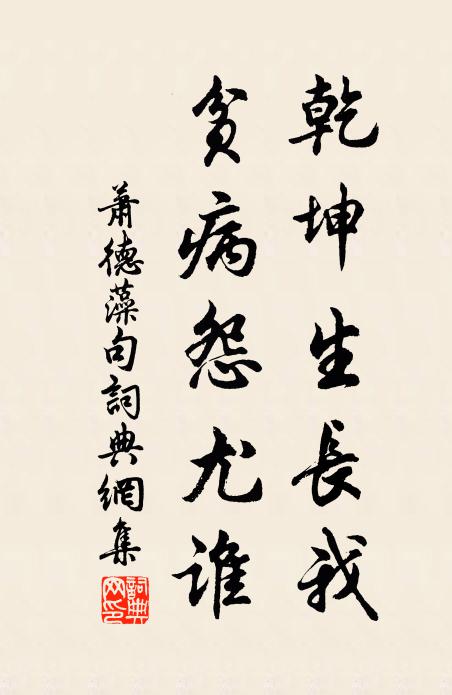 乾坤生長我
貧病怨尤誰
蕭德藻句詞典網集
詞典网印